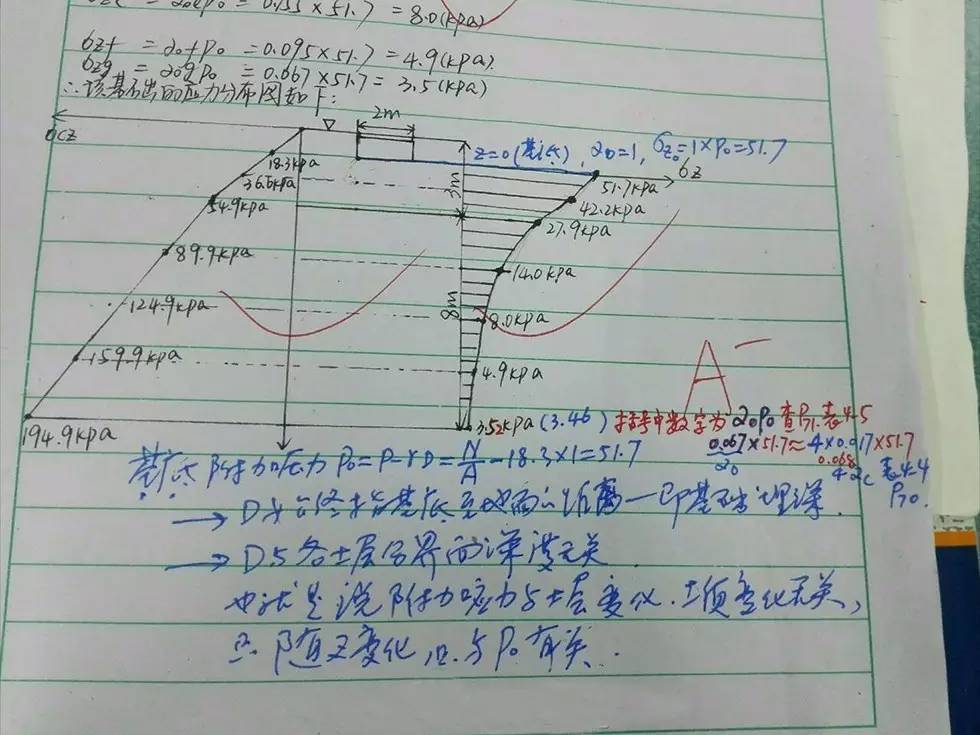 = 0.155 × 51.7 = 8.0(kpa)
σzf = α0fp0 = 0.095×51.7 = 4.9(kpa)
σzg = α0gp0 = 0.067×51.7 = 3.5(kpa)
∴该基础的应力分布图如下:
σcz
2m
z=0(基底), α0=1, σz0=1×P0=51.7
σz
18.3kpa
36.6kpa
54.9kpa
89.9kpa
124.9kpa
159.9kpa
194.9kpa
3m
8m
51.7kpa
42.2kpa
27.9kpa
14.0kpa
8.0kpa
4.9kpa
3.52kpa (3.46)
A-
括号中数字为α0P0 查P71.表4-5
0.067×51.7≈4×0.017×51.7
α0
0.068
4αc 表4-4
P70.
基底附加应力 P0=P-γD=N/A-18.3×1=51.7
→ D始终指基底至地面的距离—即基础埋深.
→ D与各土层分界面深度无关
也就是说附加应力与土层变化.土质变化无关,
只随Z变化,但与P0有关.